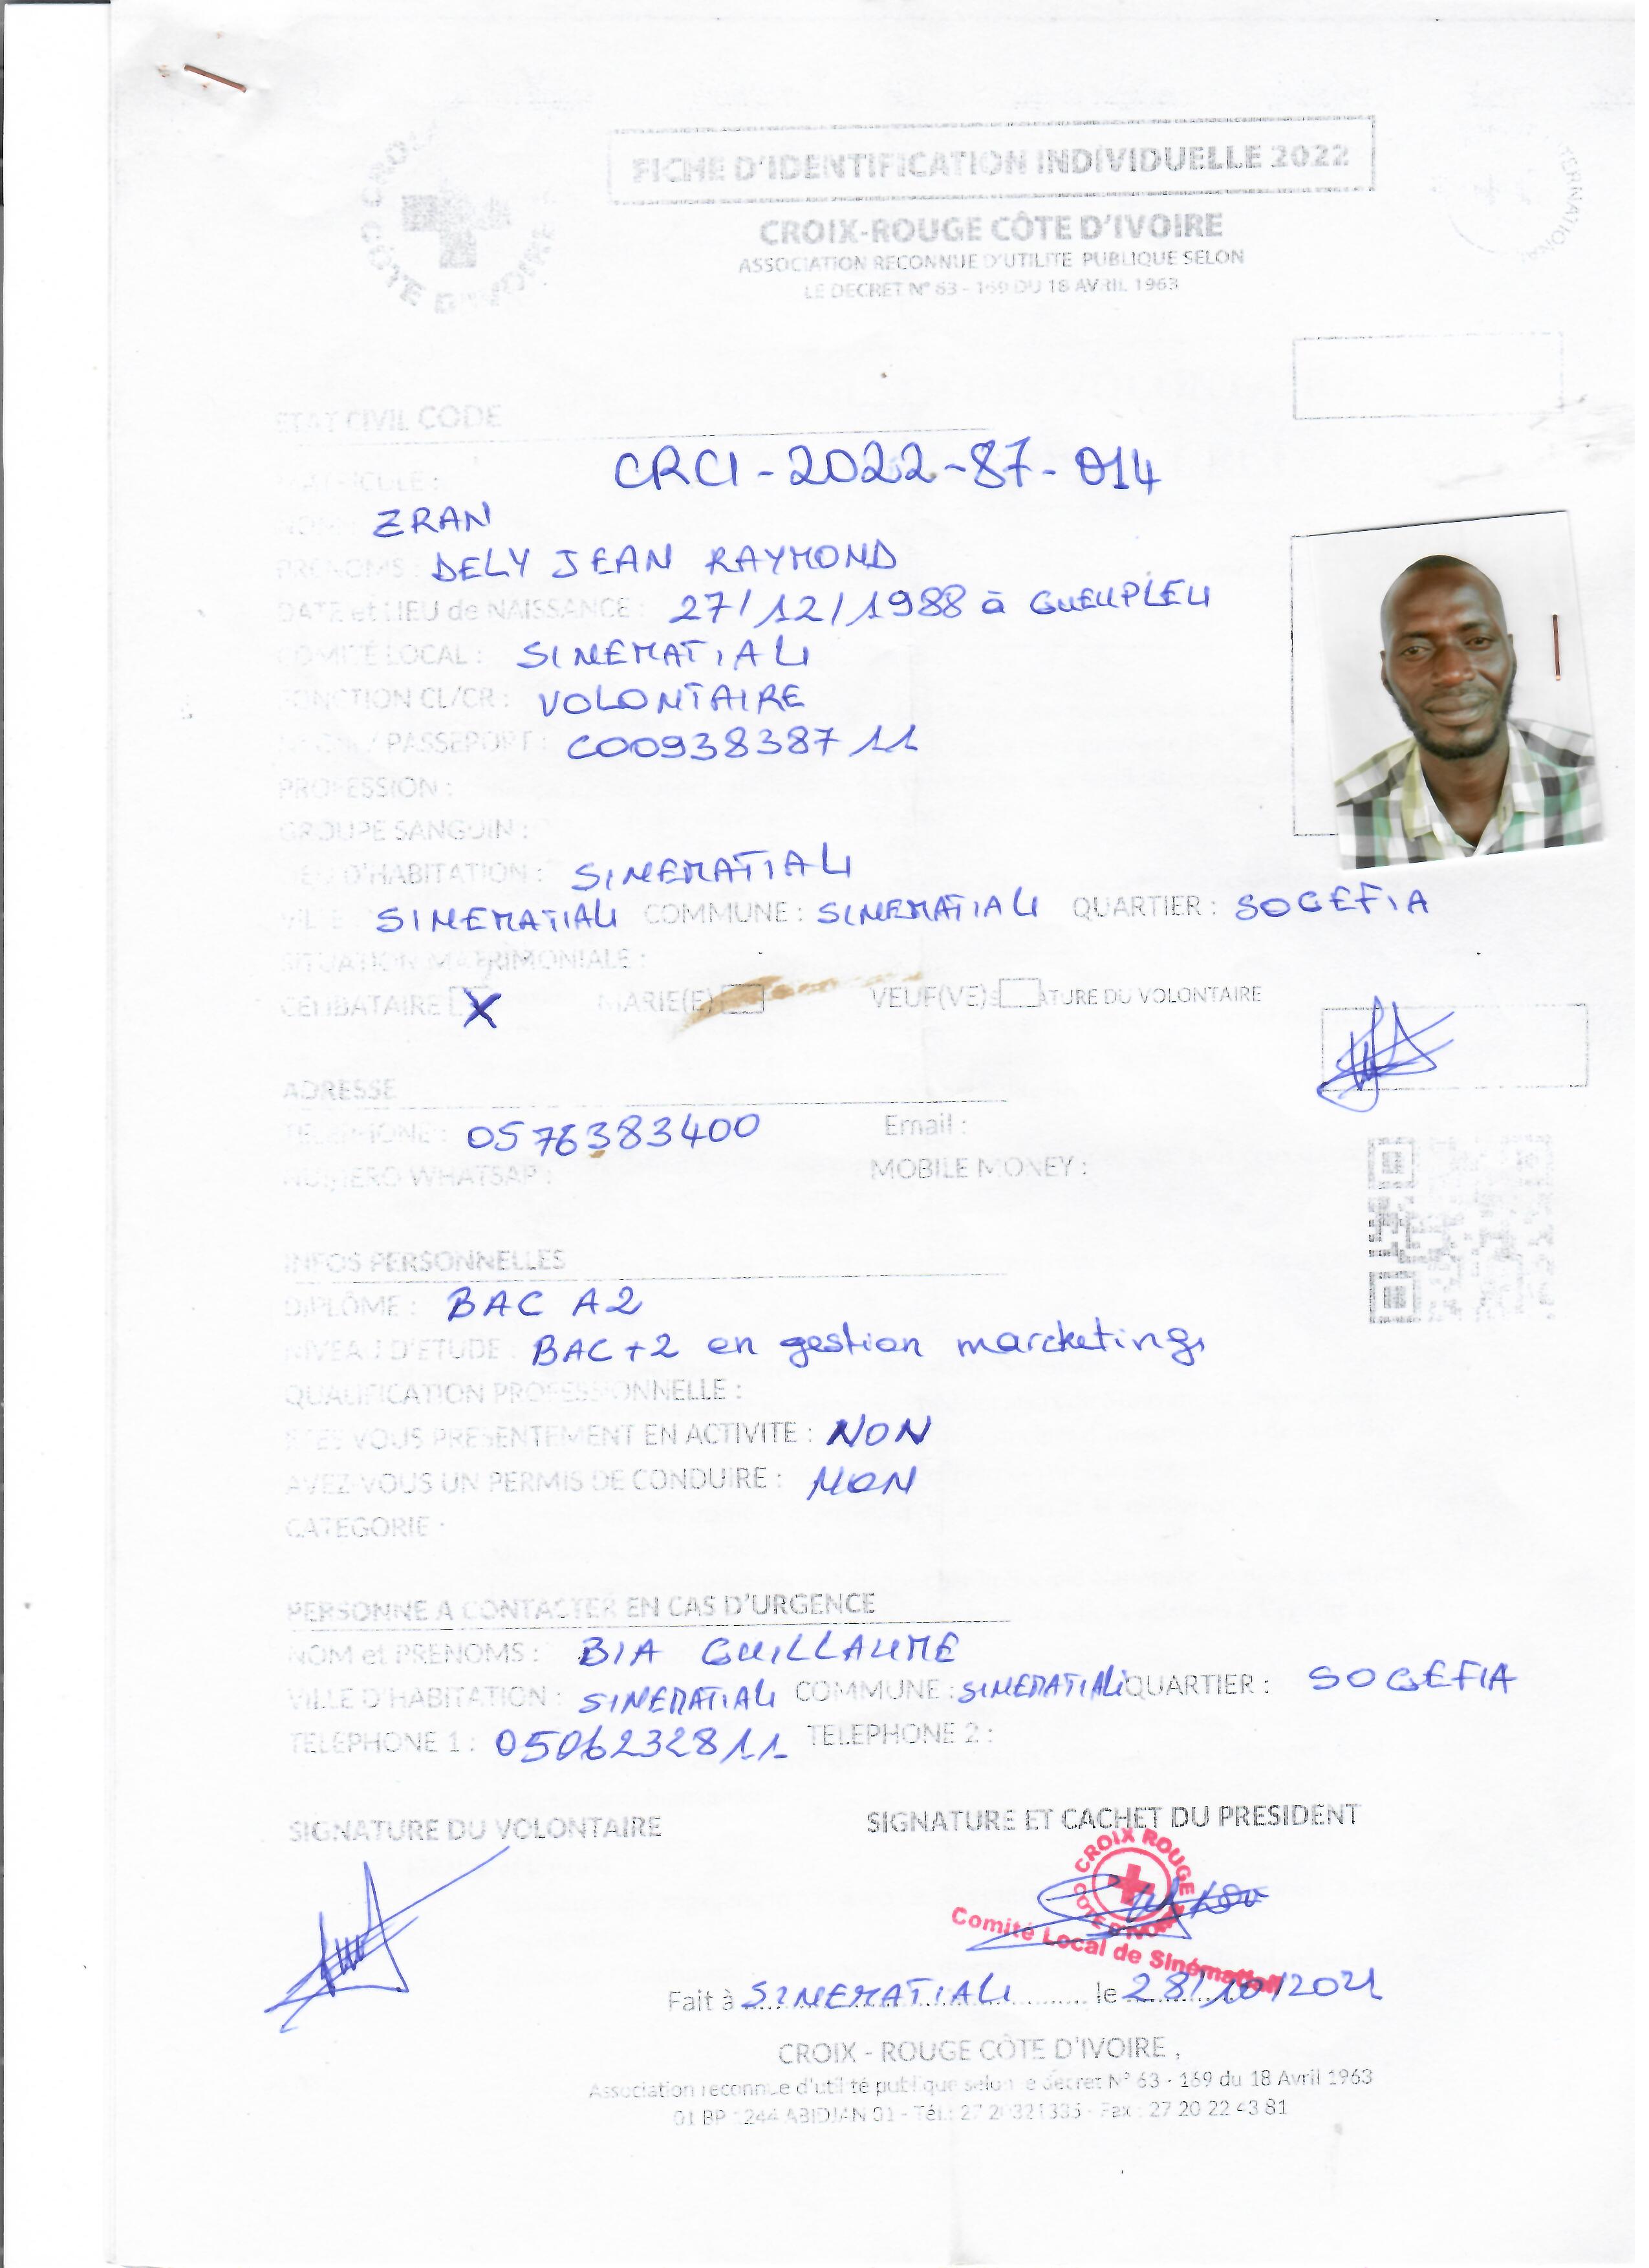 FICHE D'IDENTIFICATION INDIVIDUELLE 2022
CROIX-ROUGE CÔTE D'IVOIRE
ASSOCIATION RECONNUE D'UTILITE PUBLIQUE SELON
LE DECRET N° 63 - 169 DU 18 AVRIL 1963
ETAT CIVIL CODE
MATRICULE : CRCI - 2022 - 87 - 014
NOM : ZRAN
PRENOMS : DELY JEAN RAYMOND
DATE et LIEU de NAISSANCE : 27/12/1988 à GUEUPLEU
COMITÉ LOCAL : SINEMATIALI
FONCTION CL/CR : VOLONTAIRE
PASSEPORT : C0093838711
PROFESSION :
GROUPE SANGUIN :
LIEU D'HABITATION : SINEMATIALI
VILLE SINEMATIALI COMMUNE : SINEMATIALI QUARTIER : SOGEFIA
SITUATION MATRIMONIALE :
CELIBATAIRE X MARIE(E) VEUF(VE) ATURE DU VOLONTAIRE
ADRESSE
TELEPHONE : 0576383400 Email :
NUMERO WHATSAP : MOBILE MONEY :
INFOS PERSONNELLES
DIPLÔME : BAC A2
NIVEAU D'ETUDE : BAC+2 en gestion marcketing
QUALIFICATION PROFESSIONNELLE :
ETES VOUS PRESENTEMENT EN ACTIVITE : NON
AVEZ VOUS UN PERMIS DE CONDUIRE : NON
CATEGORIE :
PERSONNE A CONTACTER EN CAS D'URGENCE
NOM et PRENOMS : BIA GUILLAUME
VILLE D'HABITATION : SINEMATIALI COMMUNE : SINEMATIALI QUARTIER : SOGEFIA
TELEPHONE 1 : 0506232811 TELEPHONE 2 :
SIGNATURE DU VOLONTAIRE SIGNATURE ET CACHET DU PRESIDENT
CROIX ROUGE CÔTE D'IVOIRE
Comité Local de Sinématiali
Fait à SINEMATIALI le 28/10/2021
CROIX - ROUGE CÔTE D'IVOIRE ,
Association reconnue d'utilité publique selon le décret N° 63 - 169 du 18 Avril 1963
01 BP 1244 ABIDJAN 01 - Tél.: 27 20321335 - Fax : 27 20 22 43 81